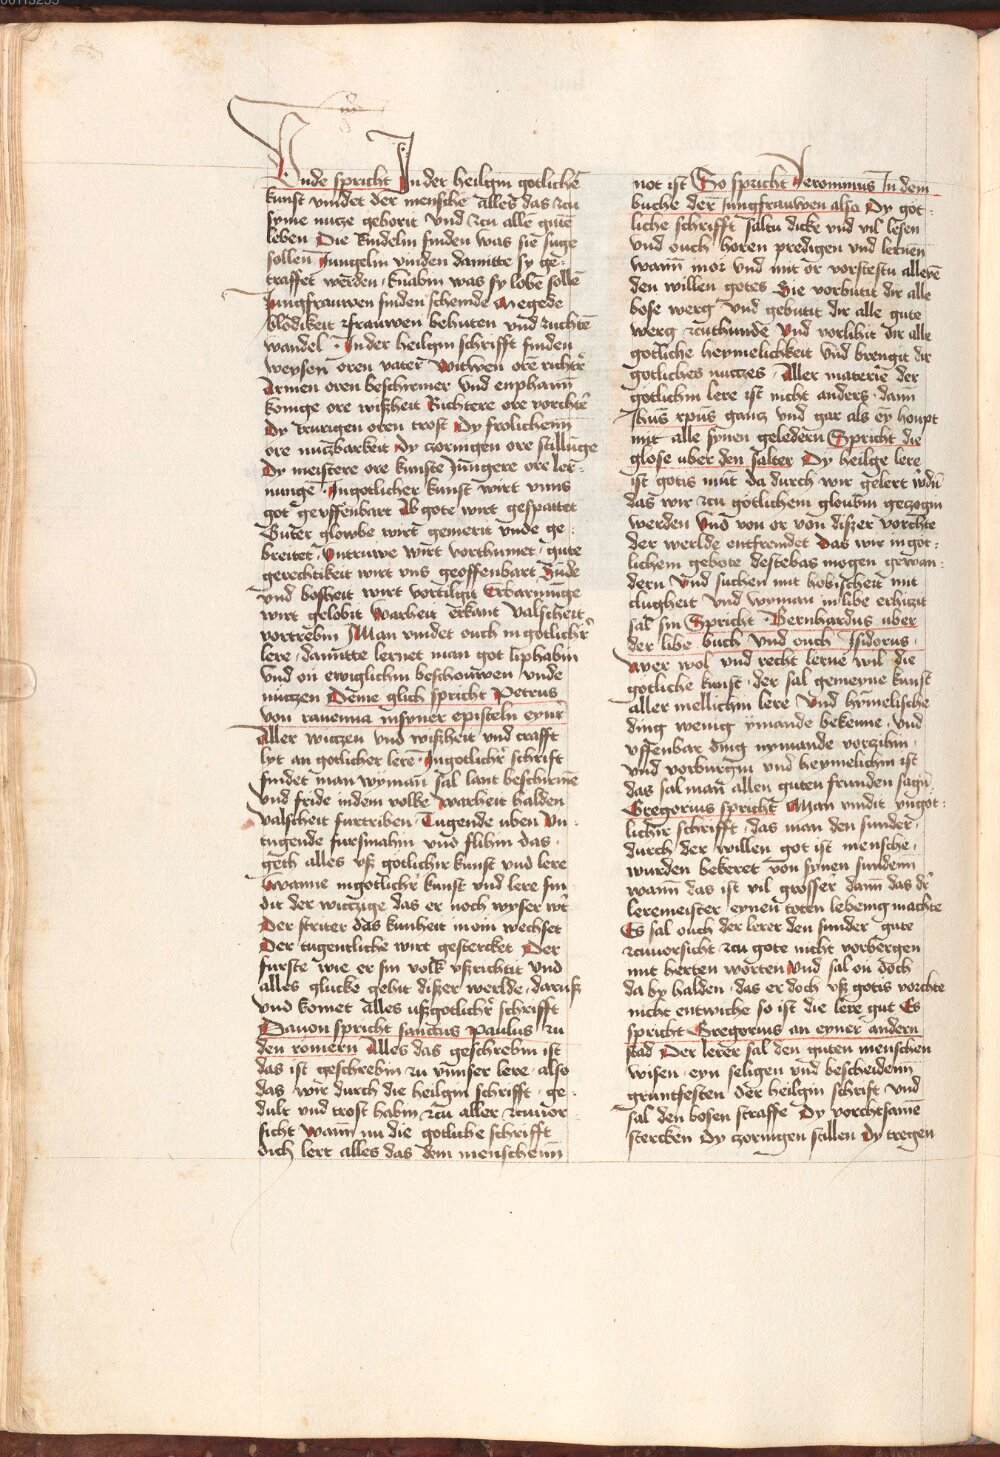 Unde spricht In der heilgin gotlichē
kunst vindet der mensche alles das zcu
syme nutze geborit Und zcu allē gutē
leben Die kindelin finden was sie suge
sollen Jungelin vinden damitte sy ge¬
traffet werden / knabin was sy lobe sollē
Jungfrauwen finden schemde Megede
blodikeit frauwen behuten und zuchtē
wandel · In der heilgin schrifft finden
weysen oren vater Witwen ore richtꝰ
Armen oren beschirmer und enphann̄
konige ore wißheit Richtere ore vorchtꝰ
Dy trurigen oren trost Dy frolichenn̄
ore nutzbarkeit Dy zcornigen ore stillūge
Dy meistere ore kunste Jungere ore ler¬
nunge · In gotlicher kunst wirt vnns
got geuffenbart Ab gote wirt gespattet
Guter glowbe wirt gemerit vnde ge¬
breitet · Untruwe wirt vorthumet / gute
gerechtikeit wirt vns geoffenbart Sūde
vnd boßheit wirt vortilgit Erbarmūge
wirt gelobit Warheit erkant valscheit
vortrebin Man vindet ouch in gotlichꝰ
lere / damitte lernet man got liphabin
vnd on ewiglichin beschouwen / vnde
nutzen Deme glich spricht Petrus
von rauenna in syner episteln eynꝰ
Aller witzen vnd wißheit vnd crafft
lyt an gotlicher lere · In gotlichꝰ schrift
findet man wy man̄ sal lant beschirmē
vnd fride in dem volke Warheit halden
valscheit furtriben · Tugende uben Vn¬
tugende fursmahin und flihin das ·
geth alles uß gotlichir kunst vnd lere
Wanne in gotlichꝰ kunst vnd lere fin¬
dit der witzige das er noch wyser wꝰt
Der striter das kunheit in oin wechset
Der tugentliche wirt gestercket Der
furste wie er sin volk ußrichtit vnd
alles glucke gehit dißer werlde / daruß
vnd komet alles uß gotlichꝰ schrifft
Dauon spricht sanctus Paulus zu
den romern Alles das geschrebin ist
das ist geschrebin zu vnnser lere · also
das wir durch die heilgin schrifft · ge¬
dult vnd trost habin zcu aller zcuuor¬
sicht Wann̄ nu die gotliche schrifft
dich lert alles das dem menschenn̄
not ist So spricht Jeronimus In dem
buche der Jungfrauwen also Dy got¬
liche schrifft saltu dicke vnd vil lesen
vnd ouch horen predigen vnd lernen
wann̄ in or vnd mit or vorstestu allerē
den willen gotes Sie vorbutit dir alle
bose werg Vnd gebutit dir alle gute
werg zcuthunde Vnd vorlihit dir alle
gotliche heymelichkeit vnd brengit dir
gotliches nutzes / Aller materie der
gotlichin lere ist nicht anders / dann̄
Jhūs xpūs gancz vnd gar als ey houpt
mit alle synen geledern Spricht die
glose uber den salter Dy heilge lere
ist gotis munt da durch wir gelert wꝰdn̄
das wir zcu gotlichem gloubin geczogin
werden Vnd von or von dißer vorchte
der werlde entfremdet Das wir in got¬
lichem gebote destebas mogen gewan¬
dern Vnd suchen mit hobischeit mit
clugheit Vnd wy man in libe erhizit
sal sin Spricht · Bernhardus uber
der libe buch Vnd ouch Isidorus ·
Wer wol vnd recht lerne wil die
gotliche kunst · der sal gemeyne kunst
aller mellichin lere Vnd hymelische
ding wenig ymande bekenne · Vnd
uffenbar ding nymande vorzihin ·
Vnd vorburgin vnd heymelichin ist
das sal man̄ allen guten frunden sagn̄
Gregorius spricht Man vindit yn got¬
lichir schrifft · das man den sunder ·
durch der willen got ist mensche ·
wurden bekeret von synen sundenn̄
wann̄ das ist vil grosser dann̄ das dꝰ
leremeister · eynen toten lebenig machte
Es sal ouch der lerer den sunder gute
zcuuorsicht zcu gote nicht vorbergen
mit herten worten Vnd sal on doch
da by halden · das er doch uß gotis vorchte
nicht entwiche so ist die lere gut Es
spricht Gregorius an eyner andern
stad Der lerer sal den guten menschen
wisen · eyn seligen vnd bescheidenn̄
gruntfesten der heilgin schrift vnd
sal den bosen straffe Dy vorchtsamē
stercken Dy zcornigen stillen Dy tregen